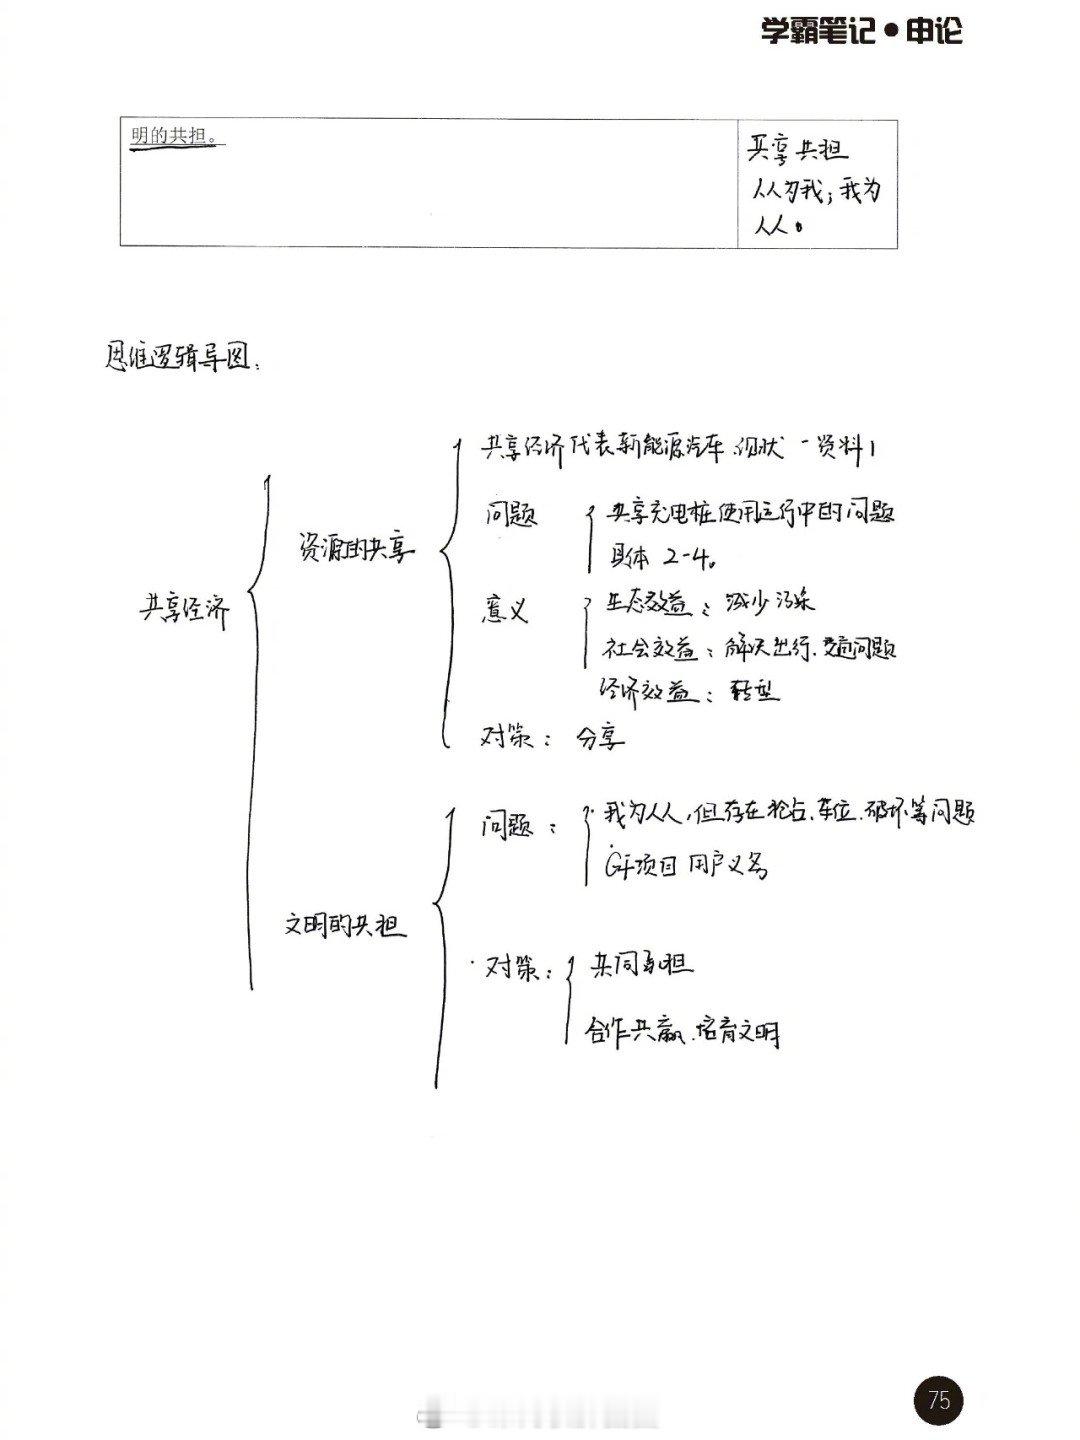 学霸笔记●申论
明的共担。
共享共担
人人为我；我为
人人。
思维逻辑导图：
共享经济代表新能源汽车.现状-资料1
问题
共享充电桩使用运行中的问题
具体 2-4。
资源的共享
共享经济
意义
生态效益：减少污染
社会效益：解决出行.交通问题
经济效益：转型
对策：分享
问题：
我为人人,但存在抢占.车位.破坏等问题
项目 用户义务
文明的共担
对策：
共同承担
合作共赢.培育文明
75